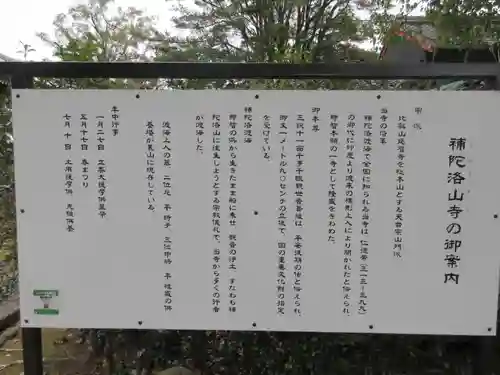 補陀洛山寺の御案内
宗派
比叡山延暦寺を総本山とする天台宗山門派
当寺の沿革
補陀洛渡海で全国に知られる当寺は、仁徳帝(三一三~三九九)
の御代に印度より渡来の裸形上人により開かれたと伝えられ、
御本尊
三貌十一面千手千眼観世音菩薩は、平安後期の作と伝えられ、
御丈一メートル九〇センチの立像で、国の重要文化財の指定
を受けている。
補陀洛渡海
那智の浜から生きたまま船に乗せ、観音の浄土、すなわち補
陀洛山に往生しようとする宗教儀礼で、当寺から多くの行者
が渡海した。
渡海上人の墓
養塔が裏山に現存している。
年中行事
一月二十七日 立春大護摩供星祭
五月十七日 春まつり
七月十日 土用護摩供 先祖供養